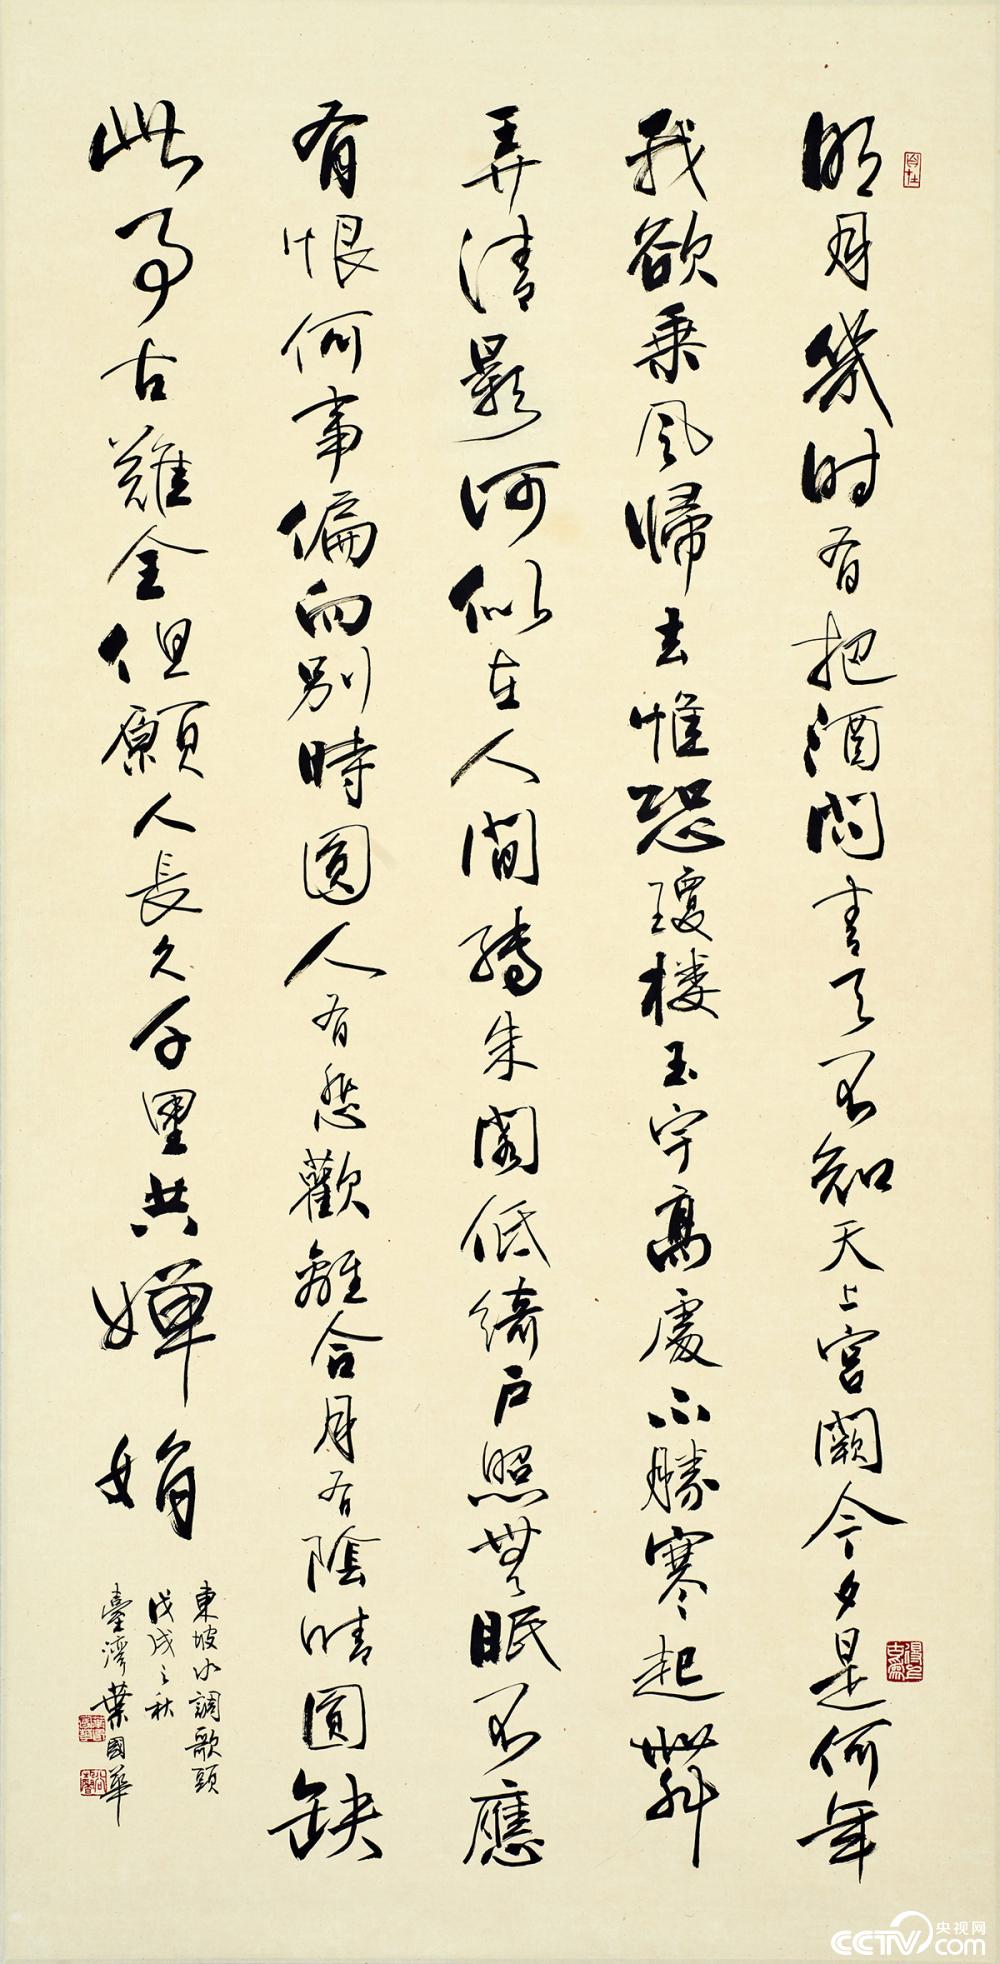 自在
明月幾时有把酒問青天不知天上宮闕今夕是何年
我欲乘風歸去惟恐瓊楼玉宇高處不勝寒起舞
弄清影何似在人間轉朱閣低綺戶照無眠不應
有恨何事偏向別時圓人有悲歡離合月有陰晴圓缺
此事古難全但願人長久千里共嬋娟
東坡水調歌頭
戊戌之秋
臺灣葉國華
央视网
CCTV.com